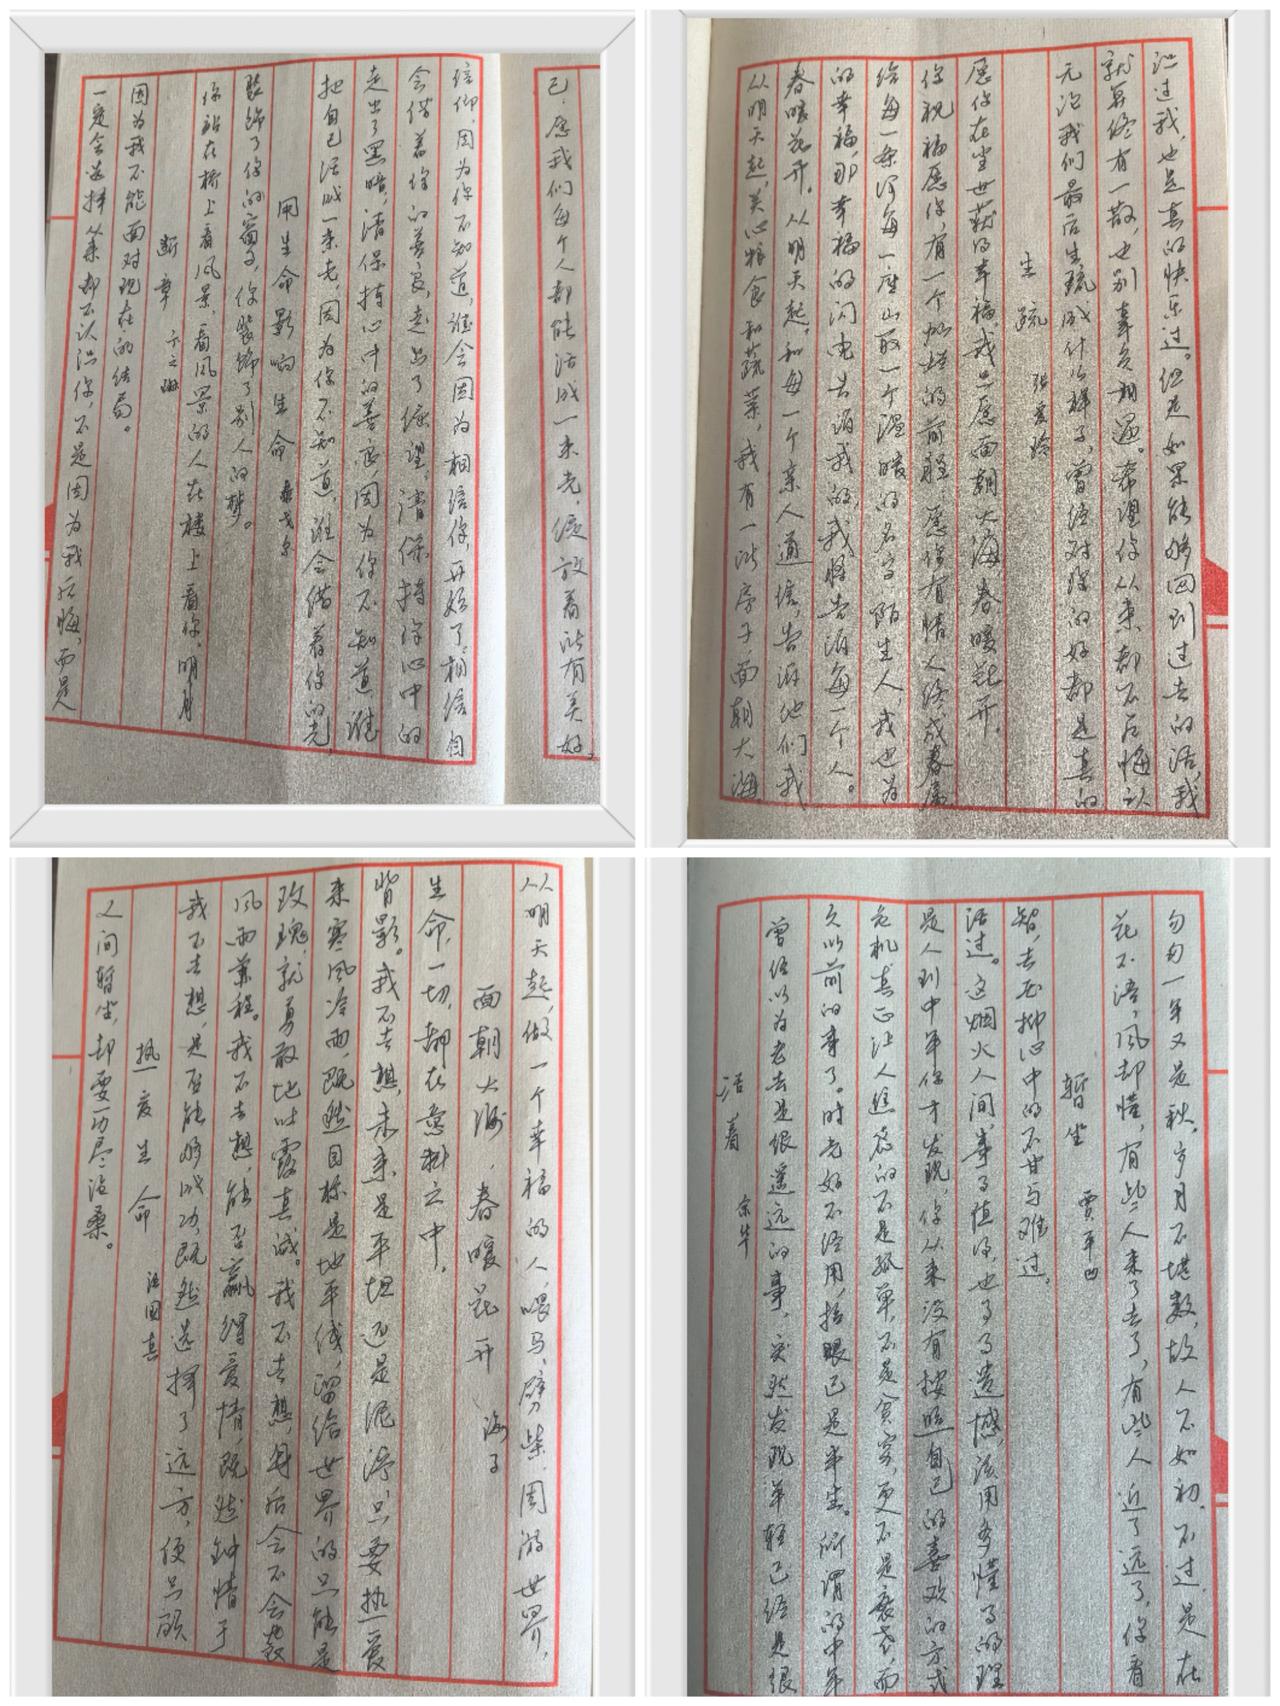 一定会选择从来都不认识你，不是因为我后悔，而是
因为我不能面对现在的结局。
断章 卞之琳
你站在桥上看风景，看风景的人在楼上看你，明月
装饰了你的窗子，你装饰了别人的梦。
用生命影响生命 泰戈尔
把自己活成一束光，因为你不知道，谁会借着你的光，
走出了黑暗，请保持心中的善良，因为你不知道谁
会借着你的善良，走出了绝望，请保持你心中的
信仰，因为你不知道，谁会因为相信你，开始了，相信自
己，愿我们每个人都能活成一束光，绽放着所有美好。
从明天起，关心粮食和蔬菜，我有一所房子，面朝大海，
春暖花开。从明天起，和每一个亲人通信，告诉他们我
的幸福，那幸福的闪电告诉我的，我将告诉每一个人。
给每一条河每一座山取一个温暖的名字，陌生人，我也为
你祝福，愿你有一个灿烂的前程，愿你有情人终成眷属
愿你在尘世获得幸福，我只愿面朝大海，春暖花开。
生疏 张爱玲
无论我们最后生疏成什么样子，曾经对你的好都是真的
就算终有一散，也别辜负相遇。希望你从来都不后悔认
识过我，也是真的快乐过。但是如果能够回到过去的话，我
人间暂坐，却要历尽沧桑。
热爱生命 汪国真
我不去想，是否能够成功，既然选择了远方，便只顾
风雨兼程。我不去想，能否赢得爱情，既然钟情于
玫瑰，就勇敢地吐露真诚。我不去想，身后会不会袭
来寒风冷雨，既然目标是地平线，留给世界的只能是
背影。我不去想，未来是平坦还是泥泞，只要热爱
生命，一切，都在意料之中。
面朝大海，春暖花开 海子
从明天起，做一个幸福的人，喂马，劈柴，周游世界，
活着 余华
曾经以为老去是很遥远的事，突然发现年轻已经是很
久以前的事了。时光好不经用，抬眼已是半生。所谓的中年
危机真正让人焦虑的不是孤单，不是贫穷，更不是衰老，而
是人到中年你才发现，你从来没有按照自己的喜欢的方式
活过。这烟火人间，事事值得，也事事遗憾，该用多懂事的理
智，去压抑心中的不甘与难过。
暂坐 贾平凹
花不语，风却懂，有些人来了去了，有些人近了远了，你看
匆匆一年又是秋，岁月不堪数，故人不如初，不过，是在